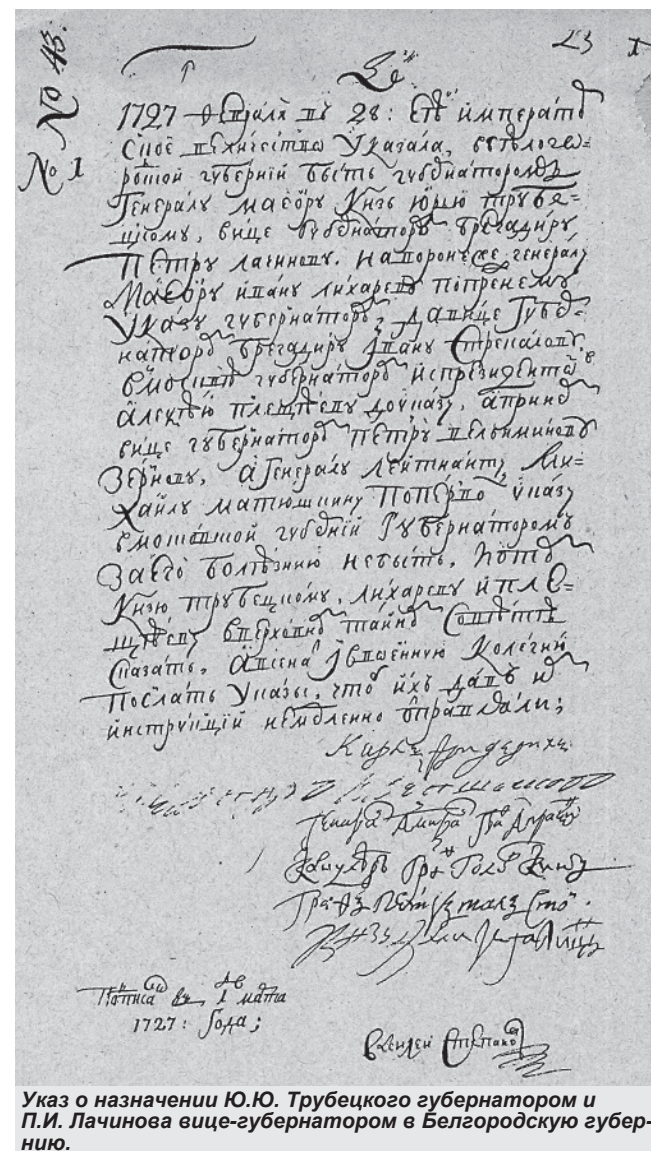 No 43.
23 1
No 1
1727 Февраля въ 28: Еѧ императо
ское величество Указала, въ бѣлого=
родской губерніи быть губернаторомъ
Генералу маеору Князь юрью трубе=
цкому, вице губернаторо брегадиру
Петру лачинову. На воронеже генералу
Маеору ивану лихареву попрежнему
Указу губернаторо, да вице Губер=
наторо брегадиру Ивану Стрекалову
вмоскве губернаторо испрезиденто
Алексѣю плещѣеву доуказу, априне
вице губернаторо Петру вельяминову
Зернову, а Генералу лейтнанту Ми=
хайлу матюшкину По указу
вмосковской губерніи Губернаторомъ
За его болѣзнию небыть, И о то
Князю трубецкому, лихареву и пле=
щѣеву вверховно тайно Совѣте
Сказать, Авсена Ивоенную Колегии
Послать Указы, что ихъ и
инструкции немедленно отправляли;
Карлъ Фридерихъ
Генера Адмира Гра Апраксинъ
Канцлеръ Гра Головкинъ
Графъ Петръ толсто.
Князь Дмитри Голицынъ
Подписа въ 1 марта
1727: Года;
Василей Степано
Указ о назначении Ю.Ю. Трубецкого губернатором и
П.И. Лачинова вице-губернатором в Белгородскую губер-
нию.